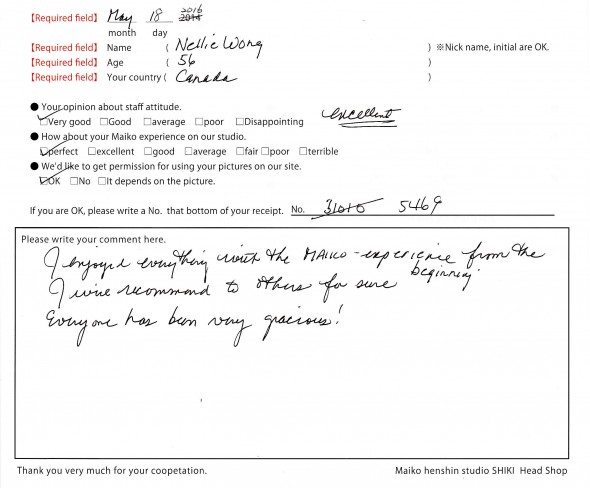 【Required field】 May 18 2016 2014
month day
【Required field】 Name ( Nellie Wong ) ※Nick name, initial are OK.
【Required field】 Age ( 56 )
【Required field】 Your country ( Canada )
● Your opinion about staff attitude.
☑Very good □Good □average □poor □Disappointing excellent
● How about your Maiko experience on our studio.
☑perfect □excellent □good □average □fair □poor □terrible
● We'd like to get permission for using your pictures on our site.
☑OK □No □It depends on the picture.
If you are OK, please write a No. that bottom of your receipt. No. 5469
Please write your comment here.
I enjoyed everything with the MAIKO-experience from the
beginning.
I wire recommend to others for sure
Everyone has been very gracious!
Thank you very much for your coopetation. Maiko henshin studio SHIKI Head Shop